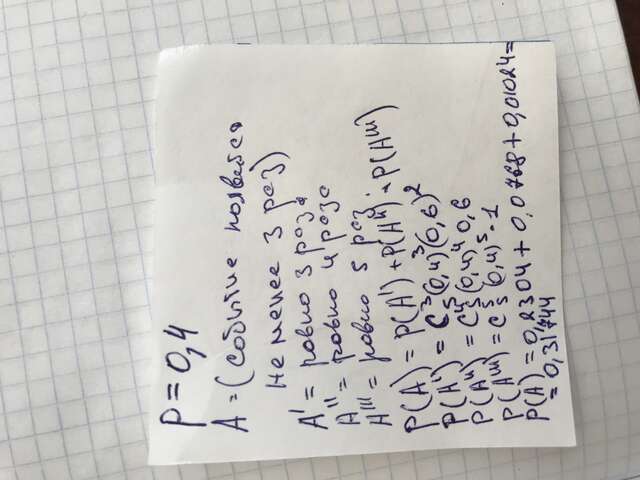 P = 0,4
A = (событие появится
не менее 3 раз)
A' = ровно 3 раза
A'' = ровно 4 раза
A''' = ровно 5 раз
P(A) = P(A') + P(A'') + P(A''')
P(A') = C₅³(0,4)³(0,6)²
P(A'') = C₅⁴(0,4)⁴ 0,6
P(A''') = C₅⁵(0,4)⁵ · 1
P(A) = 0,2304 + 0,0768 + 0,01024 =
= 0,31744